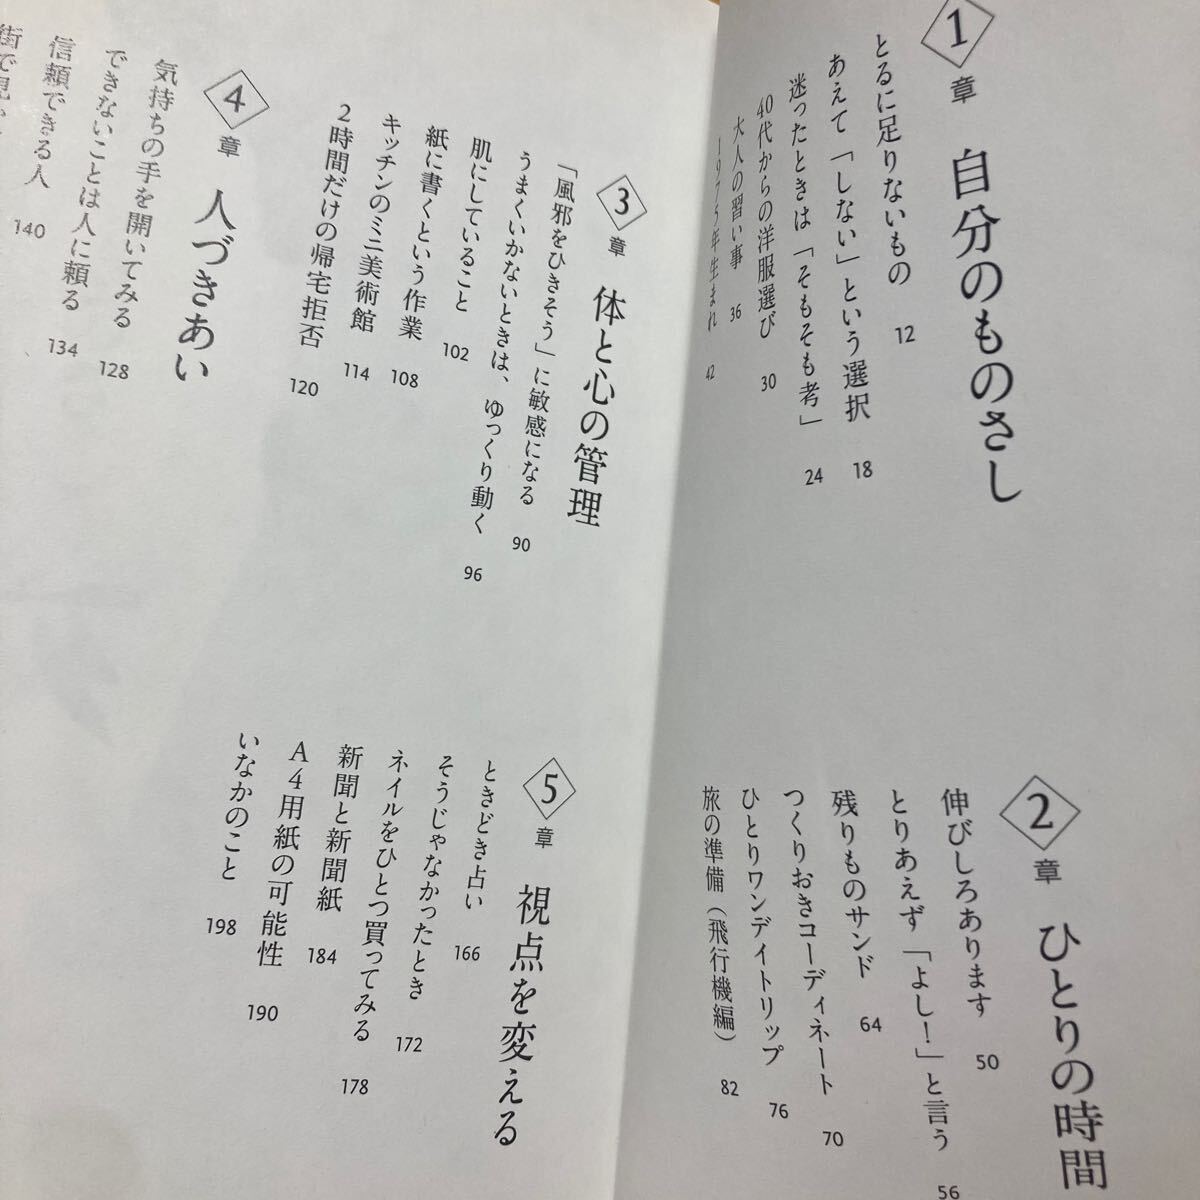 1章 自分のものさし
とるに足りないもの 12
あえて「しない」という選択 18
迷ったときは「そもそも考」 24
40代からの洋服選び 30
大人の習い事 36
1975年生まれ 42
2章 ひとりの時間
伸びしろあります 50
とりあえず「よし!」と言う 56
残りものサンド 64
つくりおきコーディネート 70
ひとりワンデイトリップ 76
旅の準備(飛行機編) 82
3章 体と心の管理
「風邪をひきそう」に敏感になる 90
うまくいかないときは、ゆっくり動く 96
肌にしていること 102
紙に書くという作業 108
キッチンのミニ美術館 114
2時間だけの帰宅拒否 120
4章 人づきあい
気持ちの手を開いてみる 128
できないことは人に頼る 134
信頼できる人 140
街で見か
5章 視点を変える
ときどき占い 166
そうじゃなかったとき 172
ネイルをひとつ買ってみる 178
新聞と新聞紙 184
A4用紙の可能性 190
いなかのこと 198